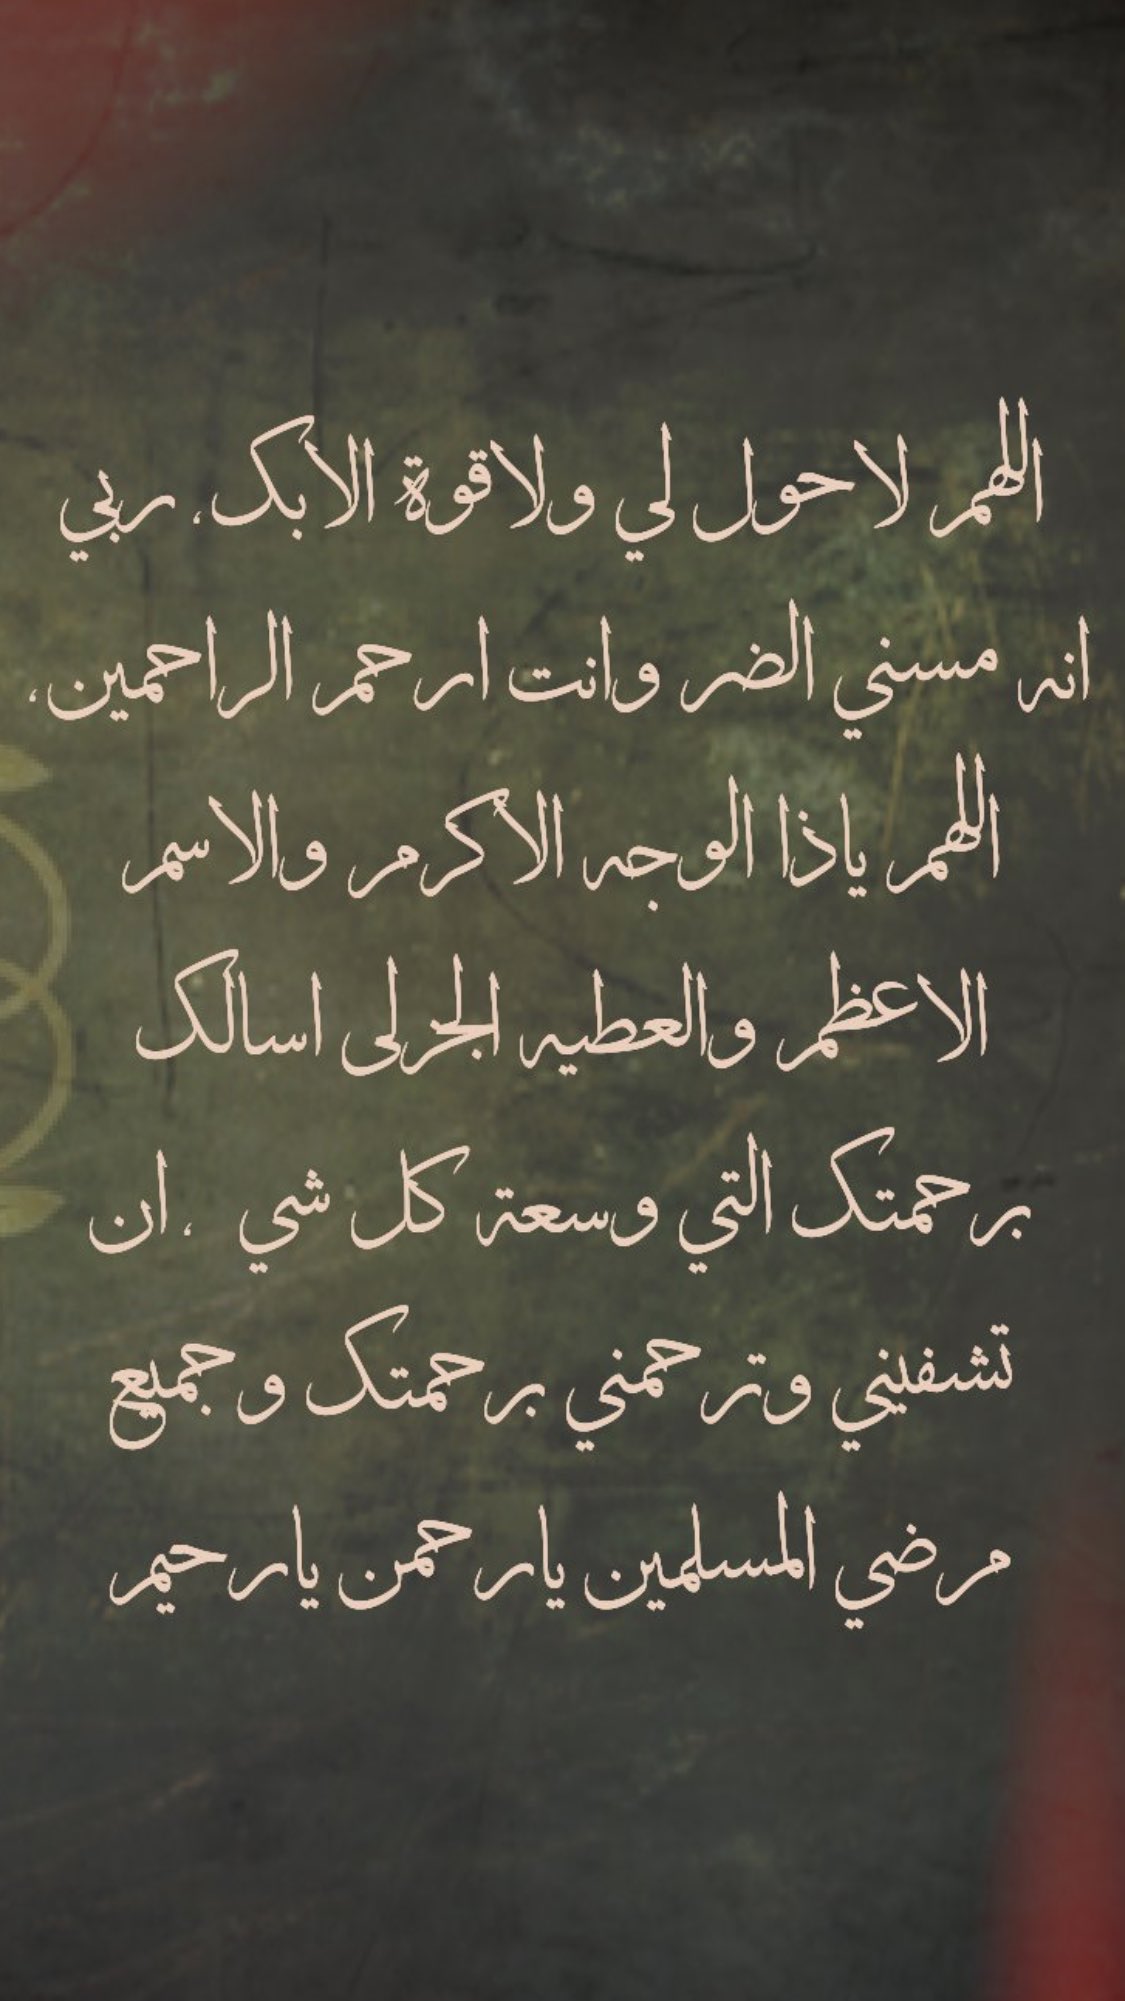 اللهم لا حول لي ولاقوة الابك، ربي
انه مسني الضر وانت ارحم الراحمين،
اللهم ياذا الوجه الاكرم والاسم
الاعظم والعطيه الجزلى اسالك
برحمتك التي وسعة كل شي ،ان
تشفيني وترحمني برحمتك وجميع
مرضي المسلمين يارحمن يارحيم